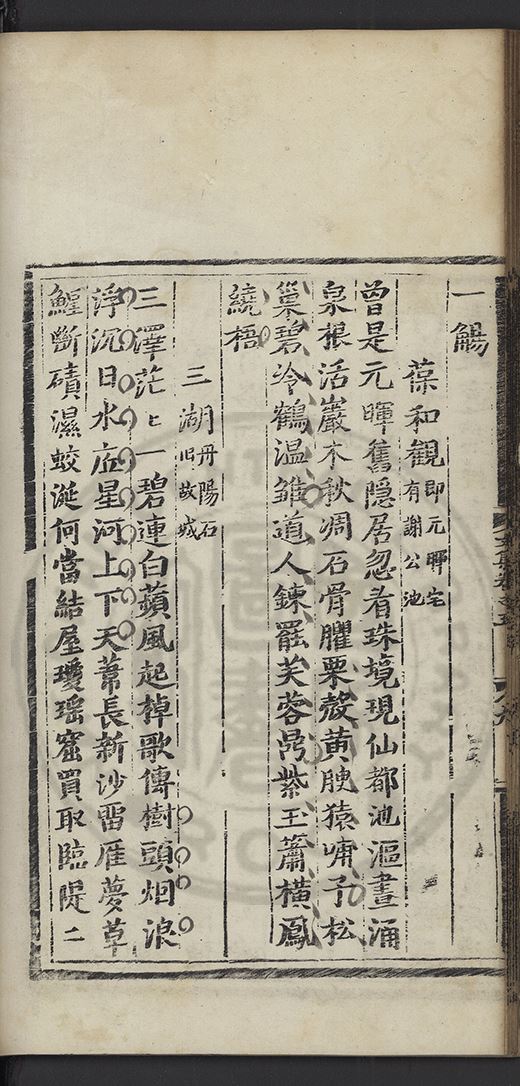 一觴
葆和觀即元暉宅有謝公池
曾是元暉舊隱居忽看珠境現仙都池漚晝涌
泉根活巖木秋凋石骨臞栗殼黃腴猿哺子松
巢碧冷鶴溫雛道人鍊罷芙蓉鼎紫玉簫橫鳳
繞梧
三湖丹陽石臼故城
三澤茫〻一碧連白蘋風起棹歌傳樹頭烟浪
浮沉日水底星河上下天葦長新沙留雁夢草
鯹斷磧濕蛟涎何當結屋瓊瑤窟買取臨隄二